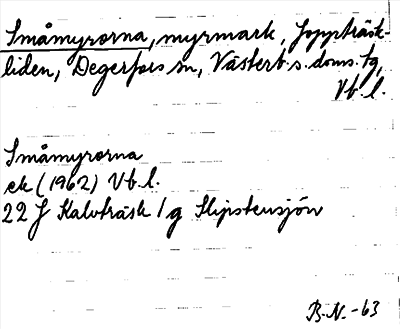 Småmyrorna, myrmark, Joppträsk-
liden, Degerfors sn, Västerb.s. doms. tg,
Vb. l.
Småmyrorna
ek (1962) Vb. l.
22 J Kalvträsk / g Slipstensjön
B.N. -63